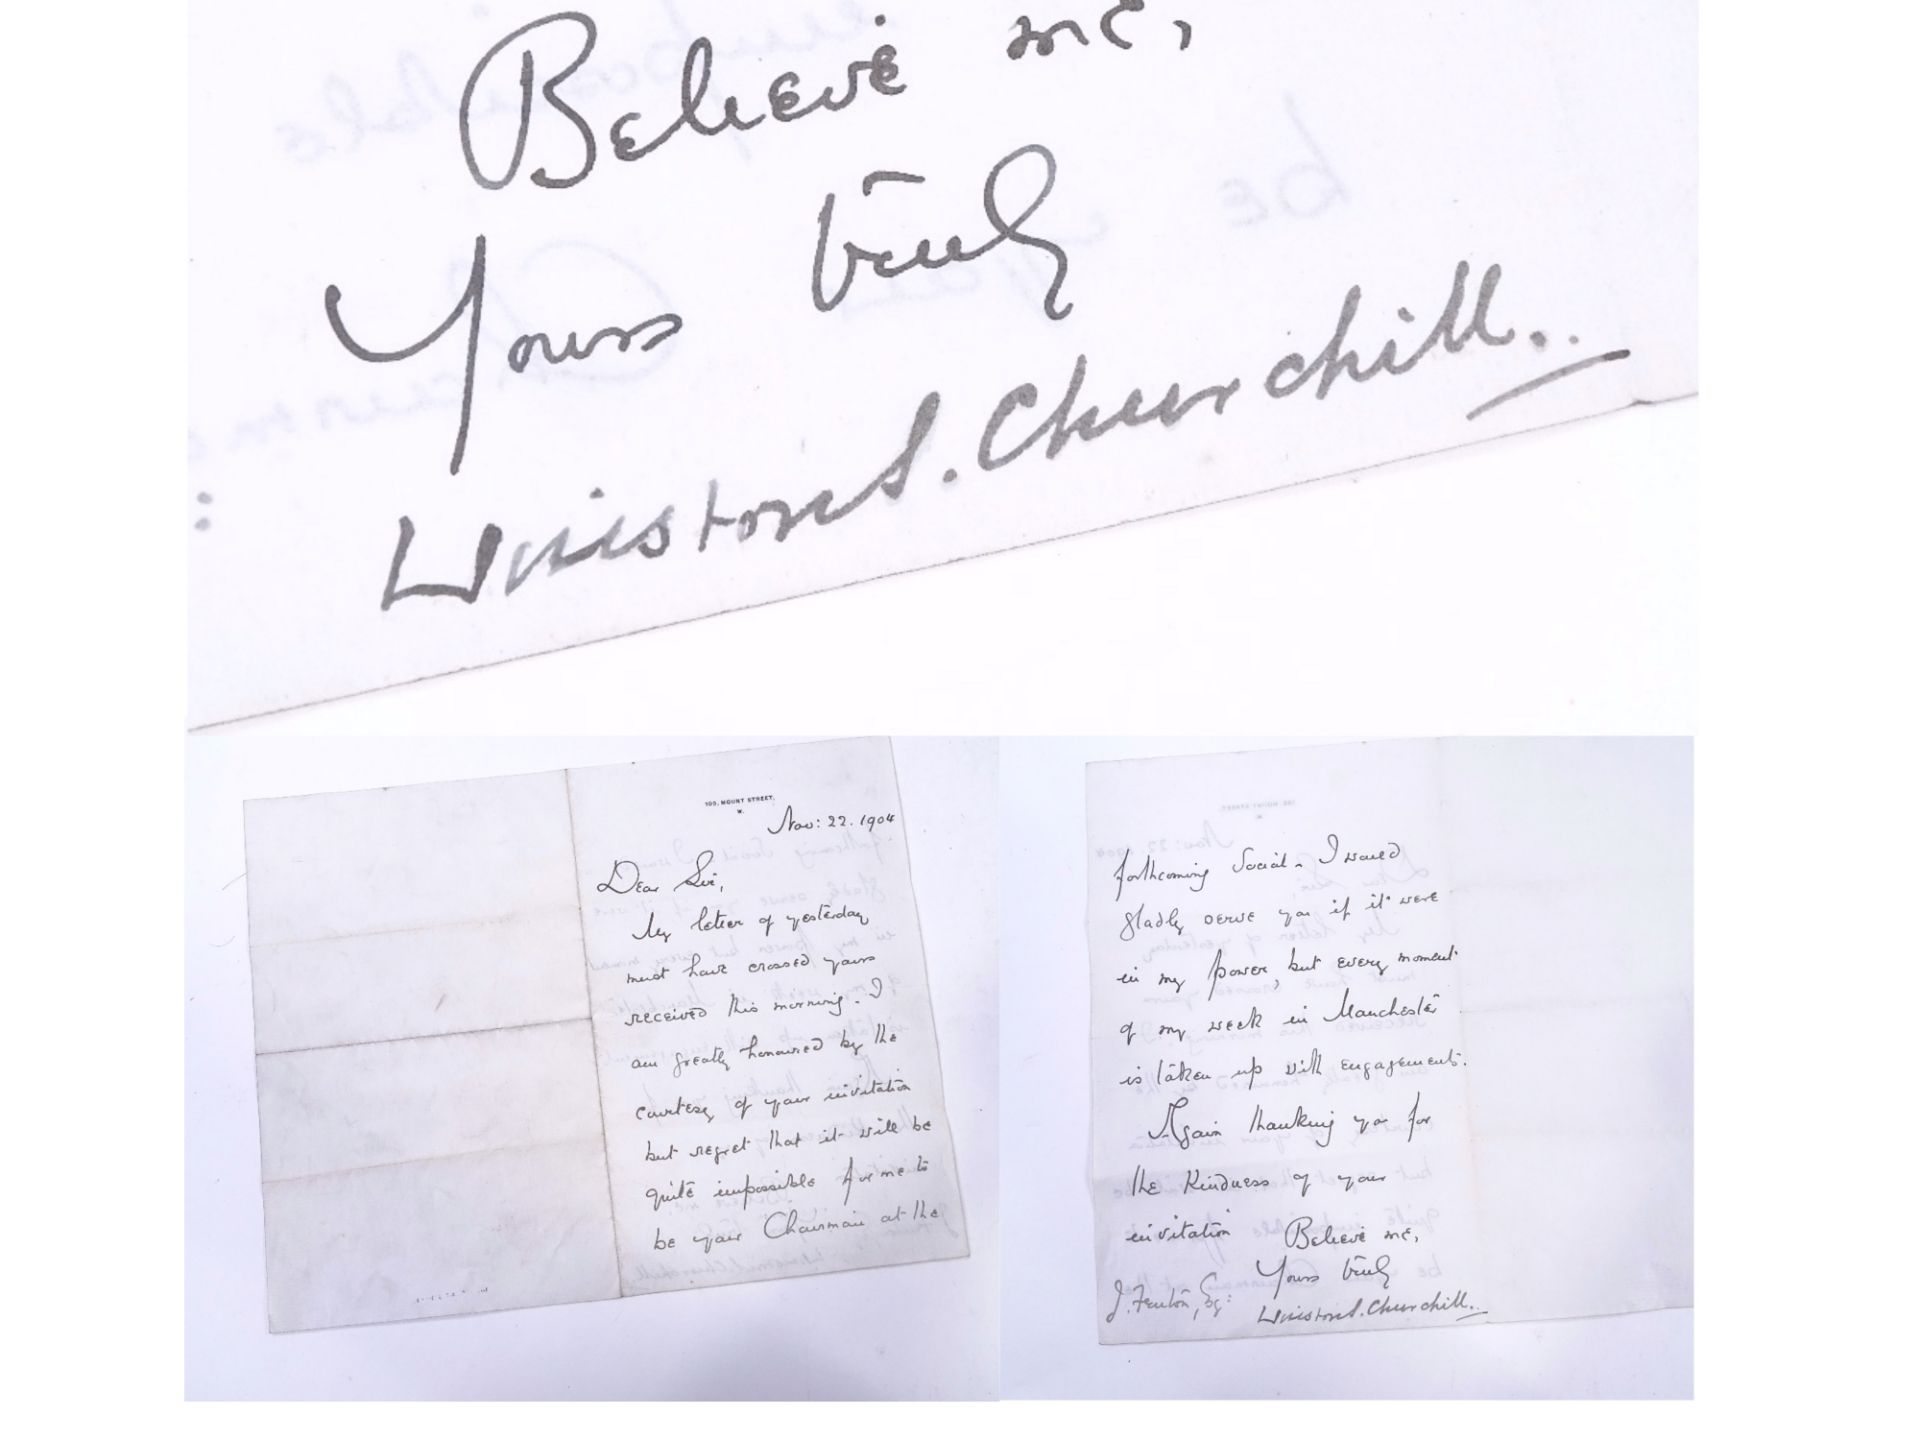 Believe me,
Yours truly
Winston S. Churchill..
103, MOUNT STREET,
W.
Nov: 22. 1904
Dear Sir,
My letter of yesterday
must have crossed yours
received this morning. I
am greatly honoured by the
courtesy of your invitation
but regret that it will be
quite impossible for me to
be your Chairman at the
forthcoming Social. I would
gladly serve you if it were
in my power, but every moment
of my week in Manchester
is taken up with engagements.
Again thanking you for
the kindness of your
invitation Believe me,
Yours truly
J. Fenton, Esq: Winston S. Churchill..